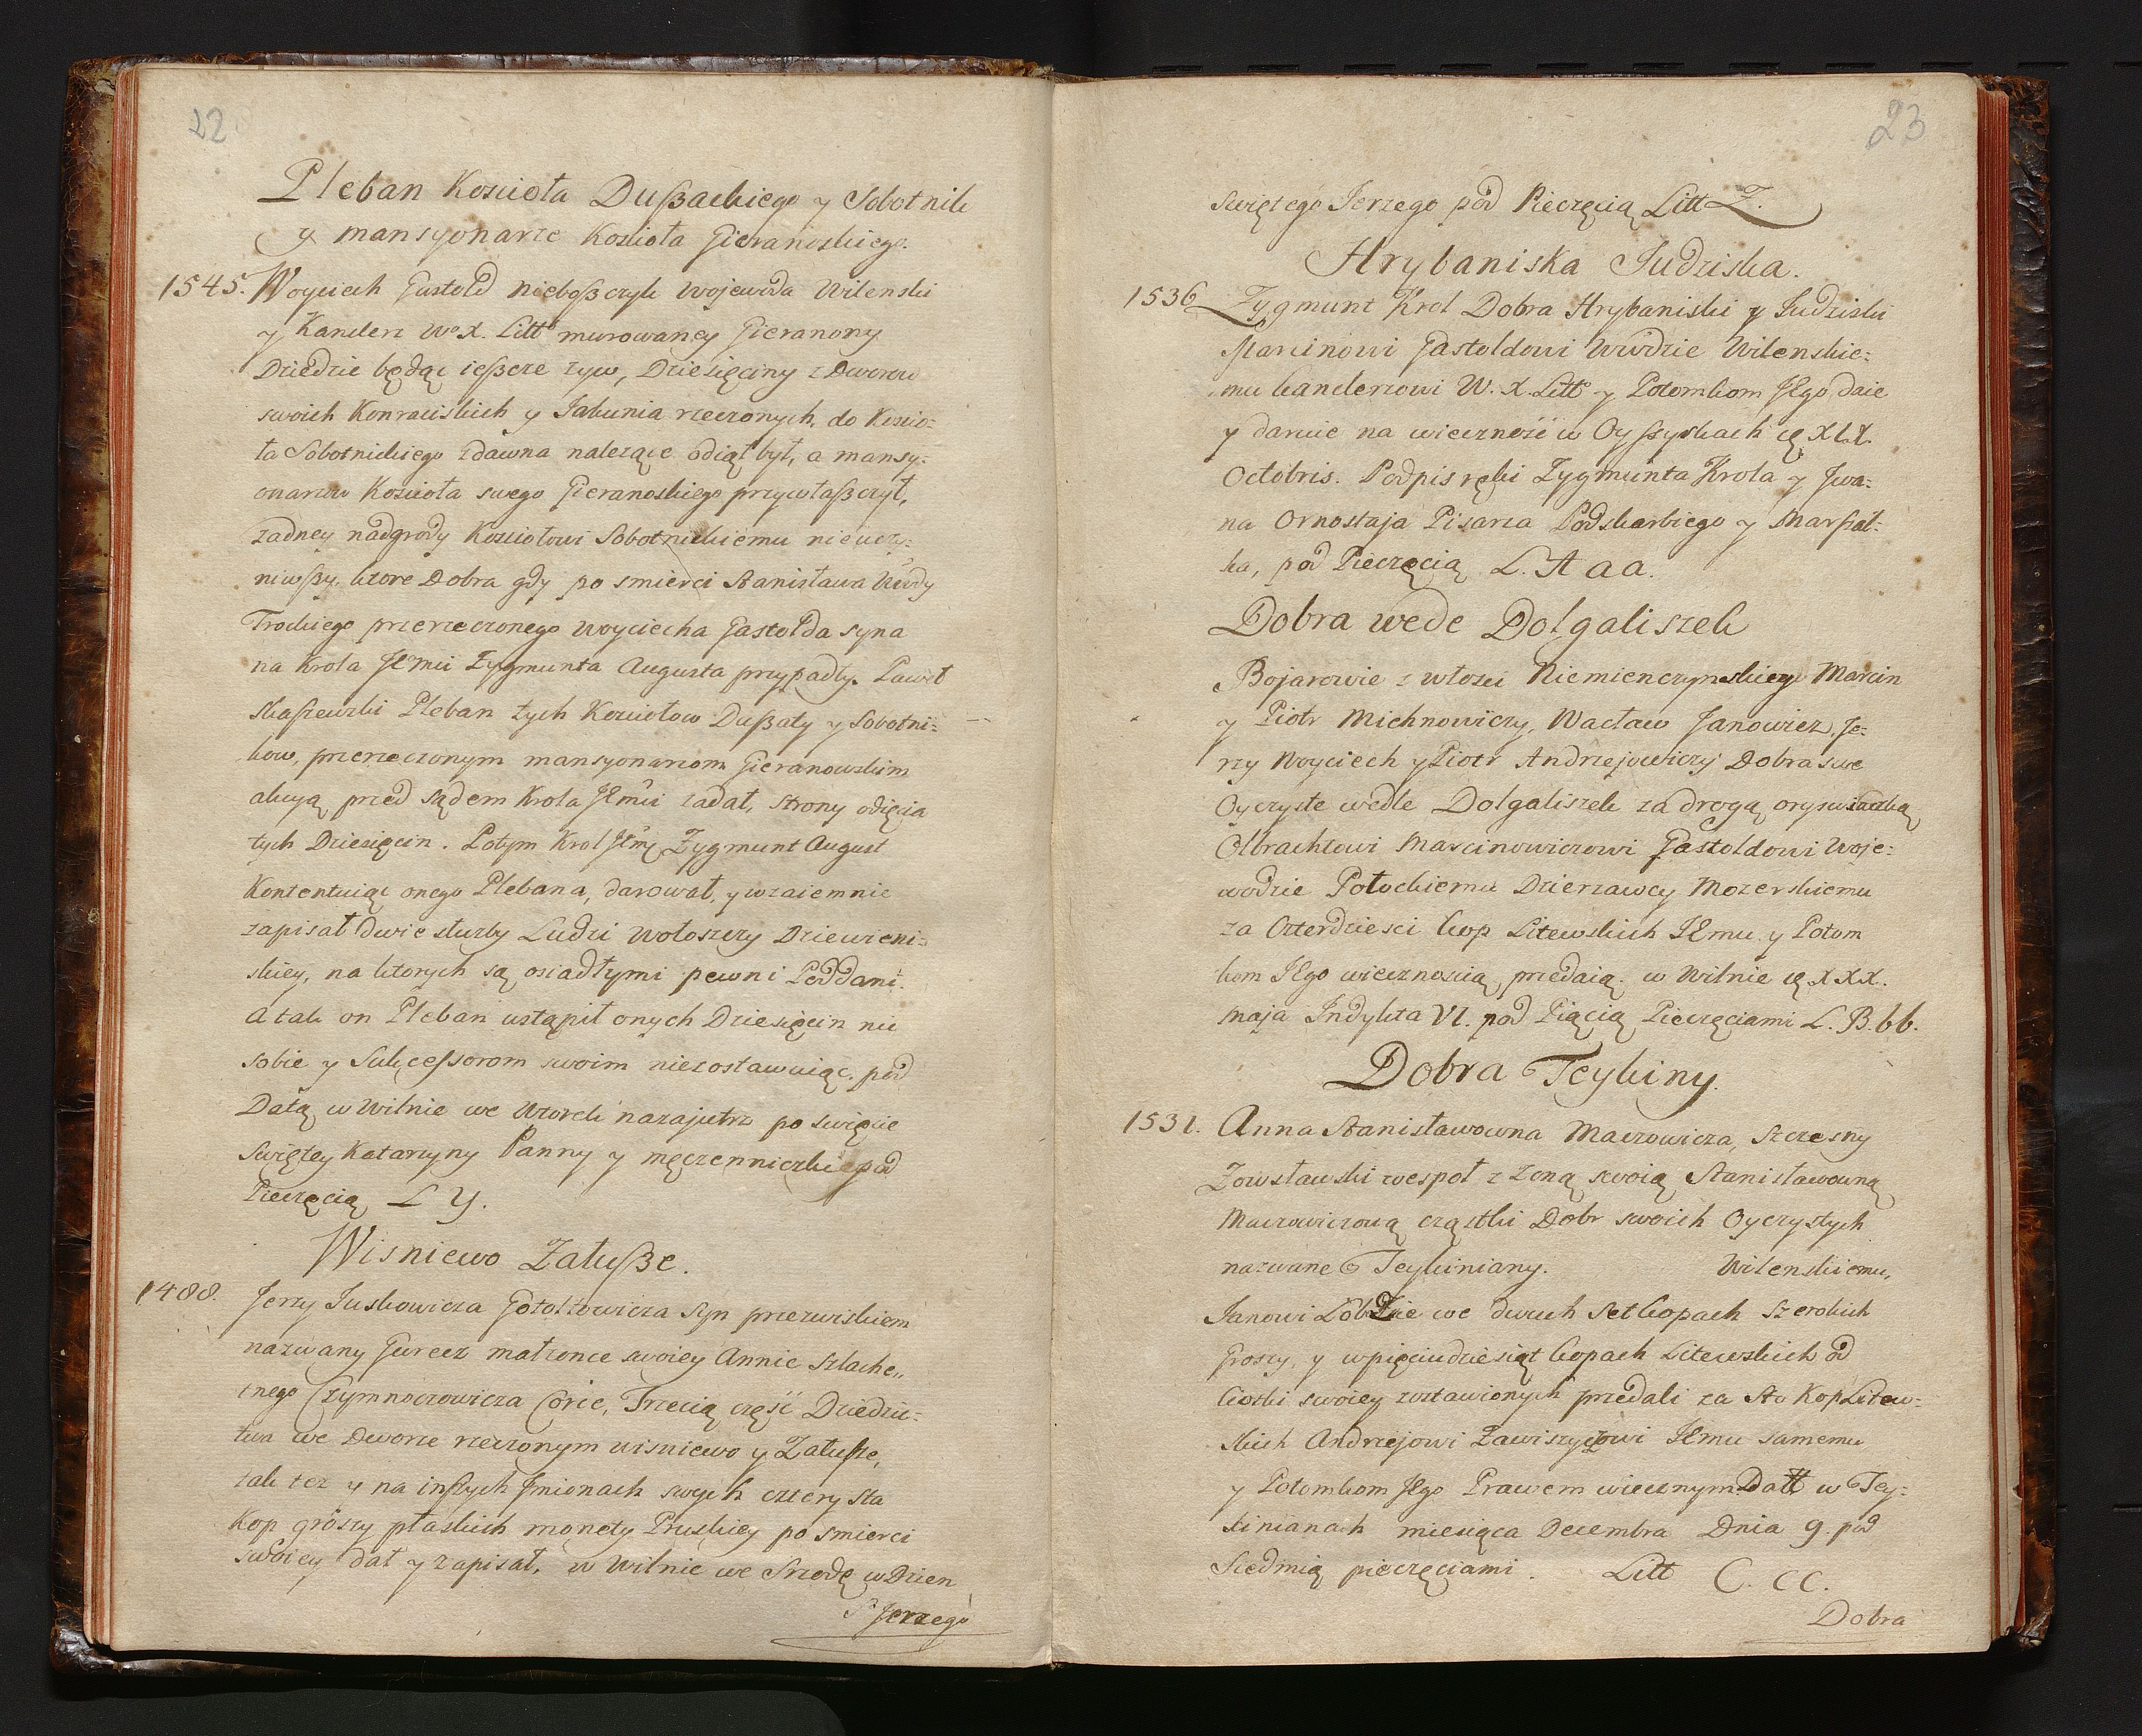 22
Pleban Kosciola Dußackiego y Sobotnik
y mansyonarze Kosciola Gieranoskiego.
1545. Woyciech Gastold nieboßczyk Wojewoda Wilenski
y Kanclerz Wo X. Litto murowaney Gieranony
Dziedzic będąc ießcze zyw, Dziesięciny z Dworow
swoich Konraciskich y Jakunia rzeczonych, do Koscio=
ła Sobotnickiego zdawna nalezące odiął był, a mansy=
onarzow Kosciola swego Gieranoskiego przywłaßczył,
zadney nadgrody Kosciołowi Sobotnickiemu nieuczy=
niwßy, ktore Dobra gdy po smierci Stanisława Wwdy
Trockiego przerzeczonego Woyciecha Gastołda syna
na Krola JEmci Zygmunta Augusta przypadły. Paweł
Skaszewski Pleban tych Kosciołow Dußaty y Sobotni=
kow, przerzeczonym mansyonarzom Gieranowskim
akcyą przed sądem Krola JEmci zadał, strony odięcia
tych Dziesięcin. Potym Krol JEmć Zygmunt August
Kontentuiąc onego Plebana, darował, y wzaiemnie
zapisał dwie służby Ludzi Wołoszczy Dziewieni=
skiey, na ktorych są osiadłymi pewni Poddani.
A tak on Pleban ustąpił onych Dziesięcin nic
sobie y Sukcessorom swoim niezostawuiąc. pod
Datą w Wilnie we Wtorek nazajutrz po Swięcie
Swiętey Katarzyny Panny y męczenniczki pod
Pieczęcią L Y.
Wisniewo Załußе.
1488. Jerzy Juskowicza Gotoltowicza Syn przezwiskiem
nazwany Gurcez małzonce swoiey Annie Szlache,,
tnego Czymnoczowicza Corce, Trzecią część Dziedzic=
twa we Dworze rzeczonym wisniewo y Załuße,
tak tez y na inszych Imionach swych cztery sta
Kop groszy płaskich monety Pruskiey po smierci
swoiey dał y zapisał. w Wilnie we Srzodę w Dzien
S. Jerzego
23
Swiętego Jerzego pod Pieczęcią Litt Z.
Hrybaniska Sudziska.
1536 Zygmunt Krol Dobra Hrybaniski y Sudziski
Marcinowi Gastoldowi Wwdzie Wilenskie=
mu kanclerzowi W. X. Litto y Potomkom JEgo daie
y daruie na wieczność w Oyszyszkach
Octobris. Podpis ręki Zygmunta Krola y Iwa=
na Ornostaja Pisarza Podskarbiego y Marszał=
ka, pod Pieczęcią L. A aa.
Dobra wede Dolgaliszek
Bojarowie z włosci Niemienczynskiey Marcin
y Piotr Michnowiczy, Wacław Janowicz, Je=
rzy Woyciech y Piotr Andrzejowiczy Dobra swe
Oyczyste wedle Dolgaliszek za drogą
Olbrachtowi Marcinowiczowi Gastoldowi Woje=
wodzie Połockiemu Dzierzawcy Mozerskiemu
za Czterdziesci kop Litewskich JEmu y Potom
kom JEgo wiecznoscią przedaią. w Wilnie XXX.
Maja Indykta VI. pod Piącią Pieczęciami L. B. bb.
Dobra Teykiny.
1531. Anna Stanisławowna Maczowicza, Szczesny
Zowsławski wespoł z zoną swoią Stanisławowną
Maczowiczową cząstki Dobr swoich Oyczystych
nazwane Teykiniany. Wilenskiemu,
Janowi we dwuch set kopach Szerokich
Groszy, y wpięciudziesiąt kopach Litewskich od
Ciotki swoiey zostawionych przedali za Sto Kop Litew=
skich Andrzejowi Zawiszycowi JEmu samemu
y Potomkom JEgo Prawem wiecznym Datt w Tey=
kinianach miesiąca Decembra Dnia 9. pod
Siedmią pieczęciami. Litt C. CC.
Dobra